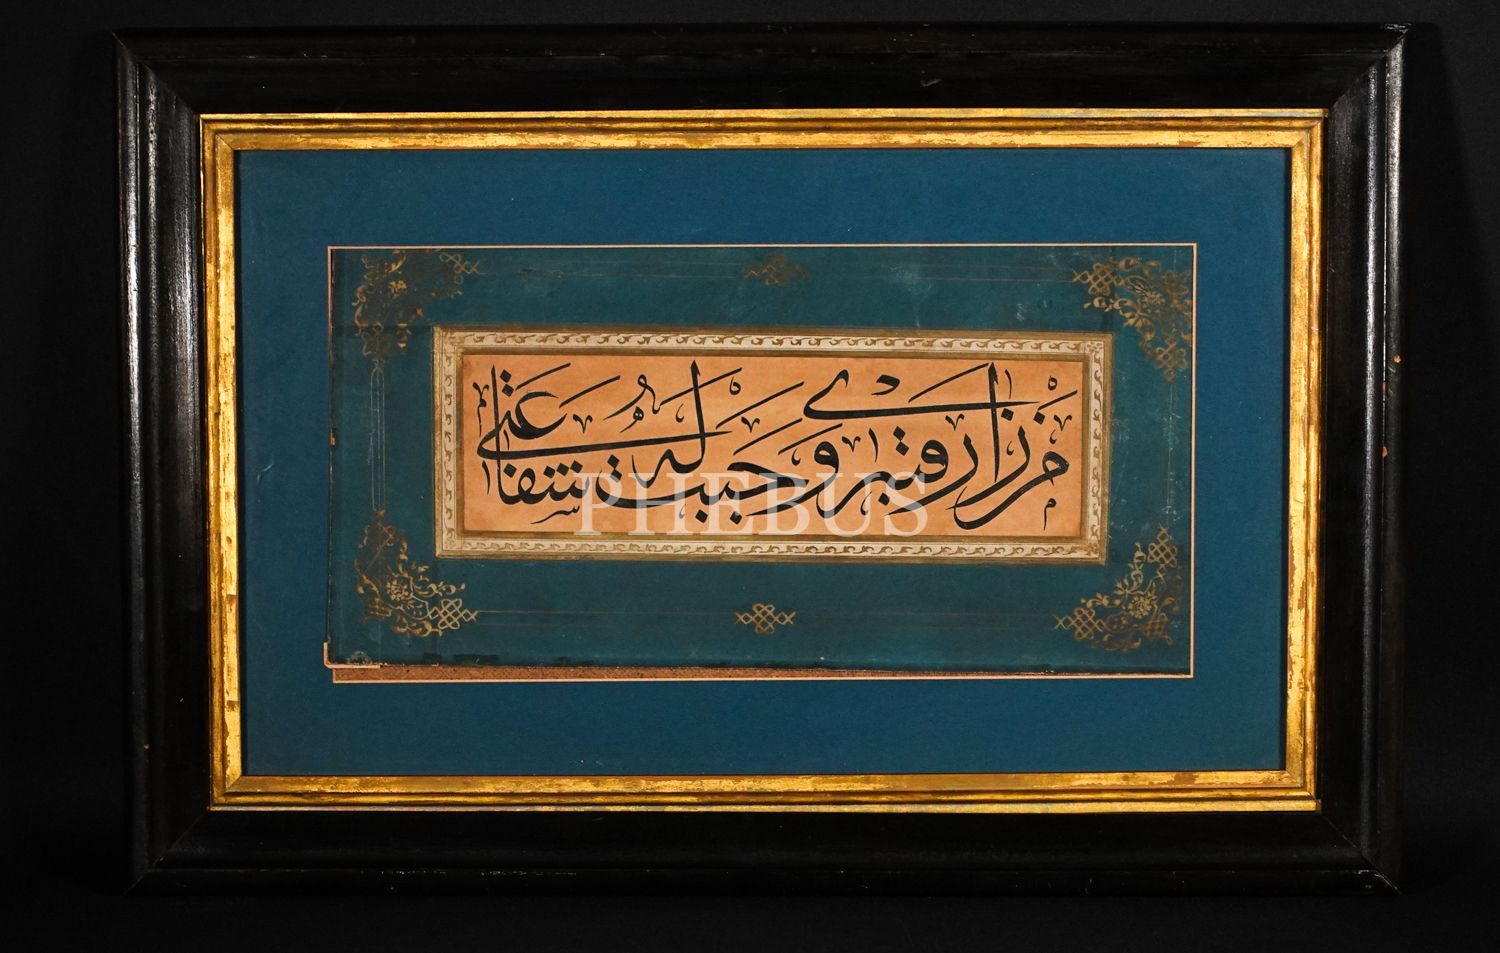 من زار قبري وجبت له شفاعتي
PHEBUS